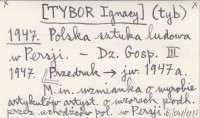 [TYBOR Ignacy] (tyb)
1947. Polska sztuka ludowa
w Persji. – Dz. Gosp. III
1947. // Przedruk → jw. 1947 a.
M. in. wzmianka o wyrobie
artykułów artyst. o wzorach podh.
przez uchodźców pol. w Persji.